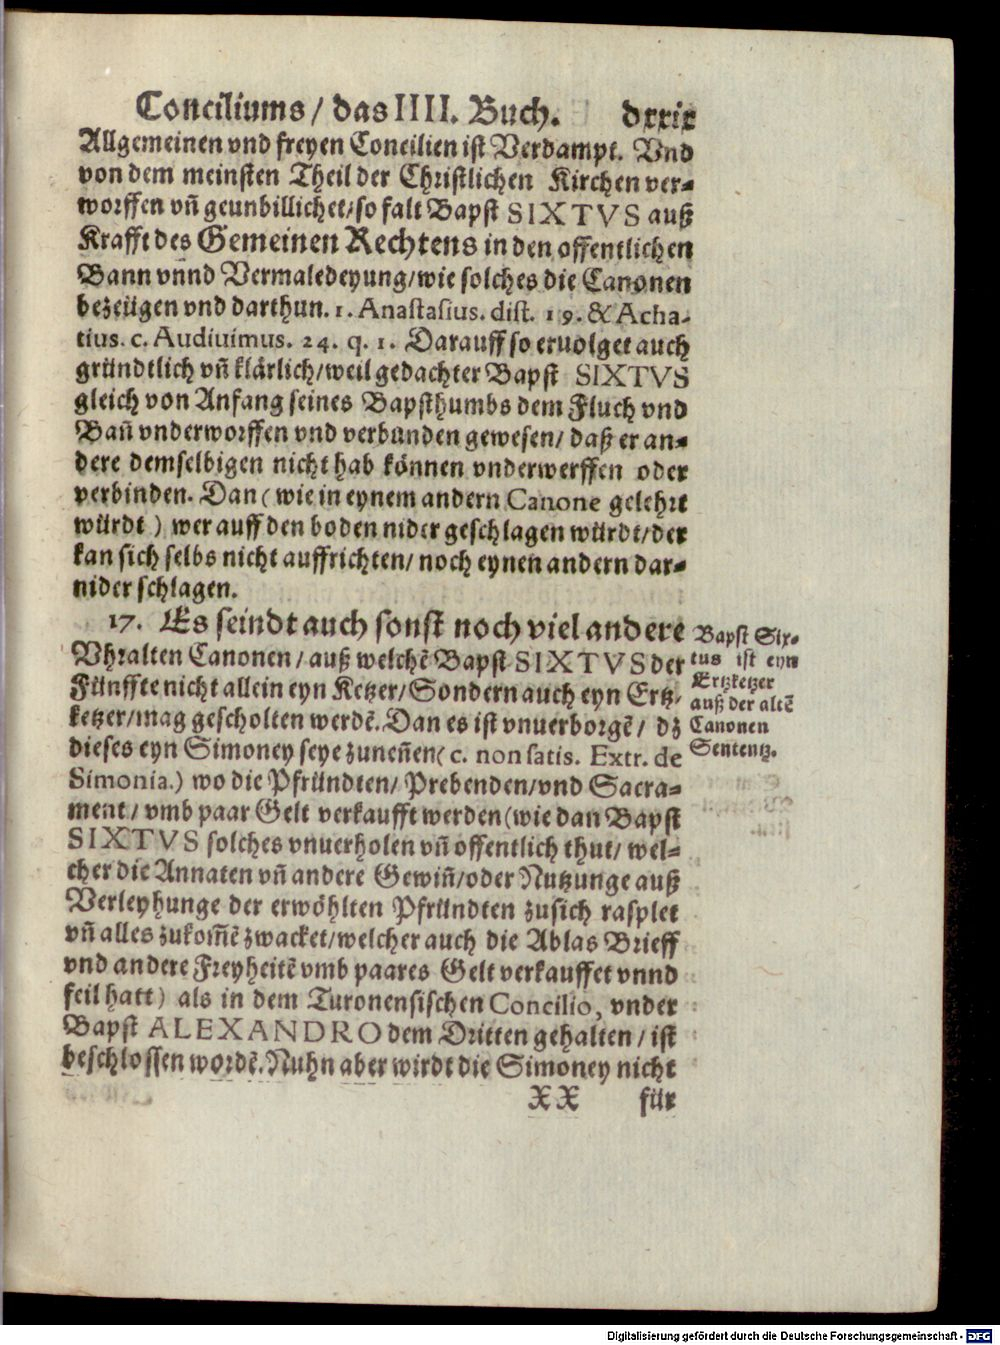 Conciliums / das IIII. Buch. dxxix
Allgemeinen vnd freyen Concilien ist Verdampt. Vnd
von dem meinsten Theil der Christlichen Kirchen ver⸗
worffen vñ geunbillichet/so falt Bapst SIXTVS auß
Krafft des Gemeinen Rechtens in den offentlichen
Bann vnnd Vermaledeyung/wie solches die Canonen
bezeügen vnd darthun. 1. Anastasius. dist. 19. & Acha-
tius. c. Audiuimus. 24. q. 1. Darauff so eruolget auch
gründtlich vñ klärlich/weil gedachter Bapst SIXTVS
gleich von Anfang seines Bapsthumbs dem Fluch vnd
Bañ vnderworffen vnd verbunden gewesen/ daß er an⸗
dere demselbigen nicht hab können vnderwerffen oder
verbinden. Dan ( wie in eynem andern Canone gelehrt
würdt ) wer auff den boden nider geschlagen würdt/der
kan sich selbs nicht auffrichten/ noch eynen andern dar⸗
nider schlagen.
17. Es seindt auch sonst noch viel andere
Vhralten Canonen / auß welchẽ Bapst SIXTVS der
Fünffte nicht allein eyn Ketzer/Sondern auch eyn Ertz-
ketzer/mag gescholten werdẽ. Dan es ist vnuerborgẽ / dz
dieses eyn Simoney seye zuneñen( c. non satis. Extr. de
Simonia.) wo die Pfründten/ Prebenden/vnd Sacra⸗
ment/ vmb paar Gelt verkaufft werden (wie dan Bapst
SIXTVS solches vnuerholen vñ offentlich thut/ wel⸗
cher die Annaten vñ andere Gewiñ/oder Nutzunge auß
Verleyhunge der erwöhlten Pfründten zusich rasplet
vñ alles zukom̃ẽ zwacket/welcher auch die Ablas Brieff
vnd andere Freyheitẽ vmb paares Gelt verkauffet vnnd
feil hatt) als in dem Turonensischen Concilio, vnder
Bapst ALEXANDRO dem Dritten gehalten / ist
beschlossen wordẽ. Nuhn aber wirdt die Simoney nicht
XX für
Bapst Six⸗
tus ist eyn
Ertzketzer
auß der altẽ
Canonen
Sententz.
Digitalisierung gefördert durch die Deutsche Forschungsgemeinschaft - DFG